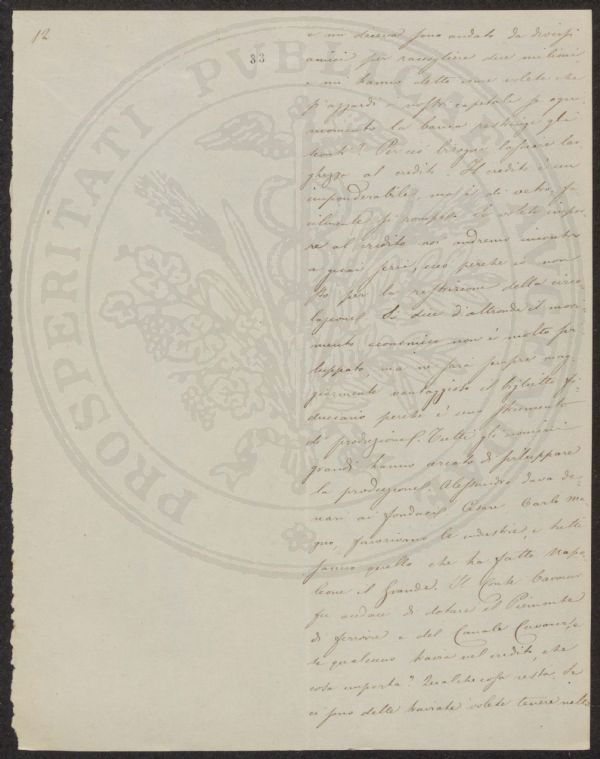 12
33
PROSPERITATI PUBLICAE
e mi diceva sono andato da diversi
amici per raccogliere due milioni
e mi hanno detto come volete che
s'azzardi i nostri capitale se ogni
momento la banca restringe gli
sconti? Perciò bisogna lasciare lar
ghezza al credito. Il credito è un
imponderabile, ma è di vetro, fa
cilmente si rompe se volete impor
re al credito noi andremo incontro
a guai serii, ecco perchè io non
sto per la restrizione della circo
lazione. Si dice d'altronde il movi-
mento economico non è molto svi
luppato, ma ne sarà sempre mag-
giormente vantaggioso il biglietto fi-
duciario perchè è uno strumento
di produzione. Tutti gli uomini
grandi hanno cercato di sviluppare
la produzione. Alessandro dava de-
nari ai Cesare Carlo Ma
gno, favorivano le industrie, e tutti
sanno quello che ha fatto Napo
leone il Grande. Il Conte Cavour
fu audace di dotare il Piemonte
di ferrovie e del Canale Cavour, e
se qualcuno havvi nel credito, che
cosa importa? Qualche cosa resta. Se
ci sono delle volete tenere nella